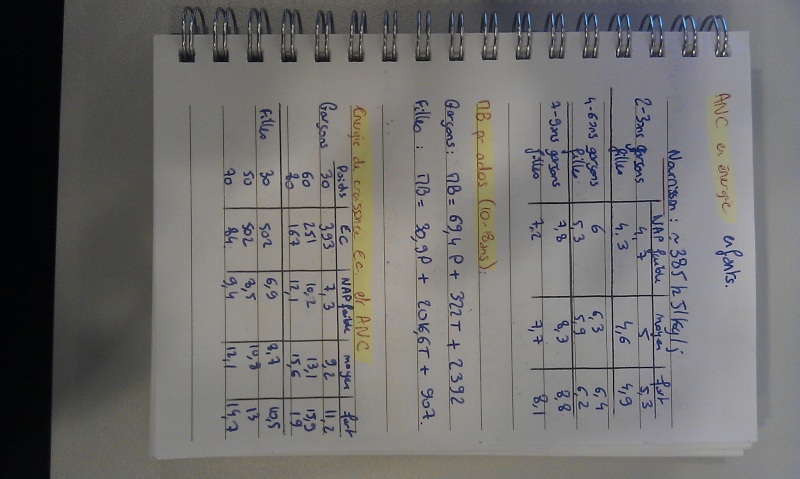 ANC en énergie enfants.
Nourrisson : ~ 385 kJ/kg/j
NAP faible moyen fort
2-3ans garsons 4,7 5 5,3
filles 4,3 4,6 4,9
4-6ans garsons 6 6,3 6,4
filles 5,3 5,9 6,2
7-9ans garsons 7,8 8,3 8,8
filles 7,2 7,7 8,1
MB pr ados (10-18ans):
Garçons: MB = 69,4P + 322T + 2392
Filles : MB = 30,9P + 2016,6T + 907.
Energie de croissance EC. etr ANC
Poids EC NAP faible moyen fort
Garçons 30 393 7,3 9,2 11,2
60 251 10,2 13,1 15,9
80 167 12,1 15,6 19
Filles 30 502 6,9 8,7 10,5
50 502 8,5 10,8 13
70 84 9,4 12,1 14,7